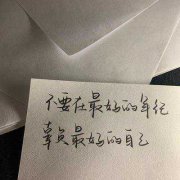 不要在最好的年纪
辜负最好的自己